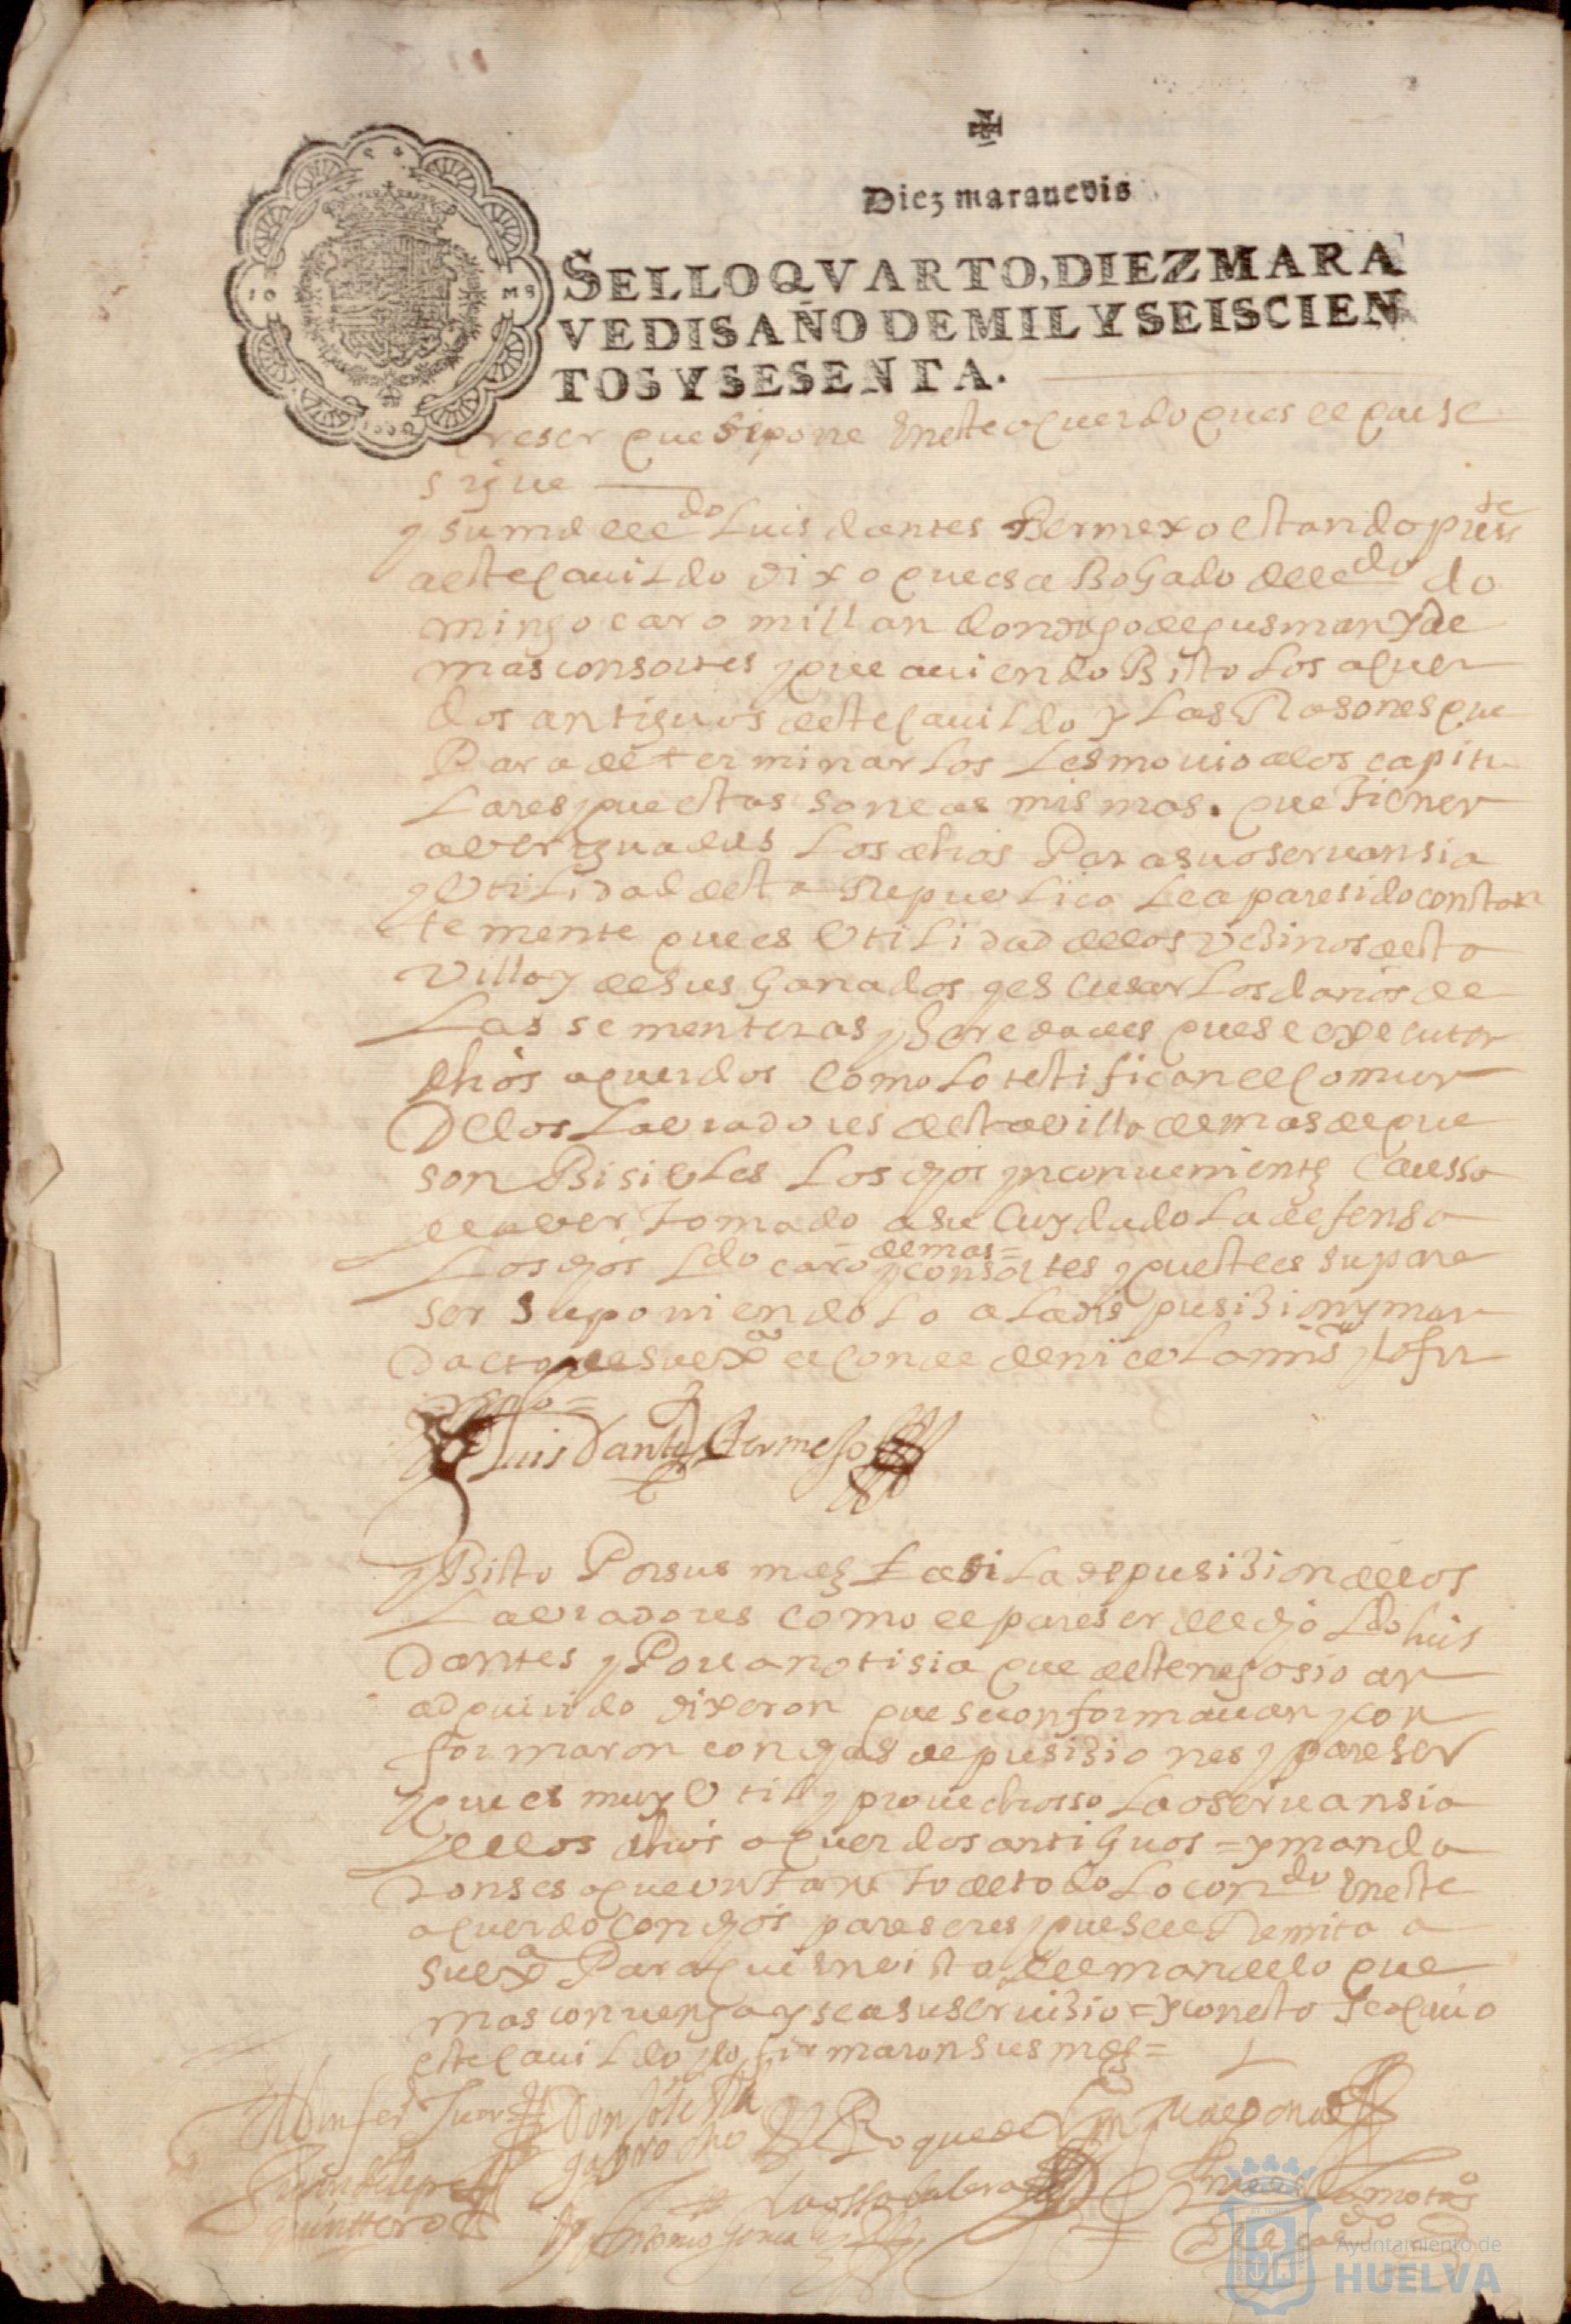 Diez maravedis
SELLO QVARTO, DIEZ MARA
VEDIS AÑO DE MIL Y SEISCIEN
TOS Y SESENTA.
reser que se pone en este aquerdo ques el que se
sigue
y su md el l^do Luis dantes Bermexo estando pres^te
a este cauildo dixo que es aBoGado del l^do do
mingo caro millan don diego de gusman y de
mas consortes y que auiendo Bisto los aquer
dos antiguos deste cauildo y las Rasones que
Para determinarlos les mouio a los capitu
lares que estas son las mismas que tienen
averiguadas los dhos Para su oseruansia
y Utilidad desta Republica le a paresido constan
temente que es Utilidad de los vesinos desta
villa y de sus Ganados y escusar los daños de
las sementeras y heredades que se executen
dhos aquerdos como lo testifican el comun
De los labradores desta villa demas de que
son Bisibles los dhos ynconuenientes Caussa
de aver tomado a su Cuydado la defensa
los dhos L^do caro y demas= consortes y que este es su pare
ser suponiendolo a la dispusision y man
dato de su ex^a el conde de niebla mi s^r y lo fir
mo=
Luis Dantes Bermejo
y Bisto Por sus mds asi la depusision de los
labradores como el pareser del dho L^do luis
Dantes y Por la notisia que deste negosio an
adquirido dixeron que se conformauan y con
formaron con dhas depusisiones y pareser
y que es muy Util y prouechosso la oseruansia
de los dhos aquerdos antiGuos = y manda
ron se saque un tanto de todo lo con^do en este
aquerdo con dhos pareseres y que se le Remita a
su ex^a Para que en vista del mande lo que
mas conuenga y sea su seruisio = y con esto se acauo
este cauildo y lo firmaron sus mds =
Don
Roque de
quinttero
Antonio
Ayuntamiento de
HUELVA